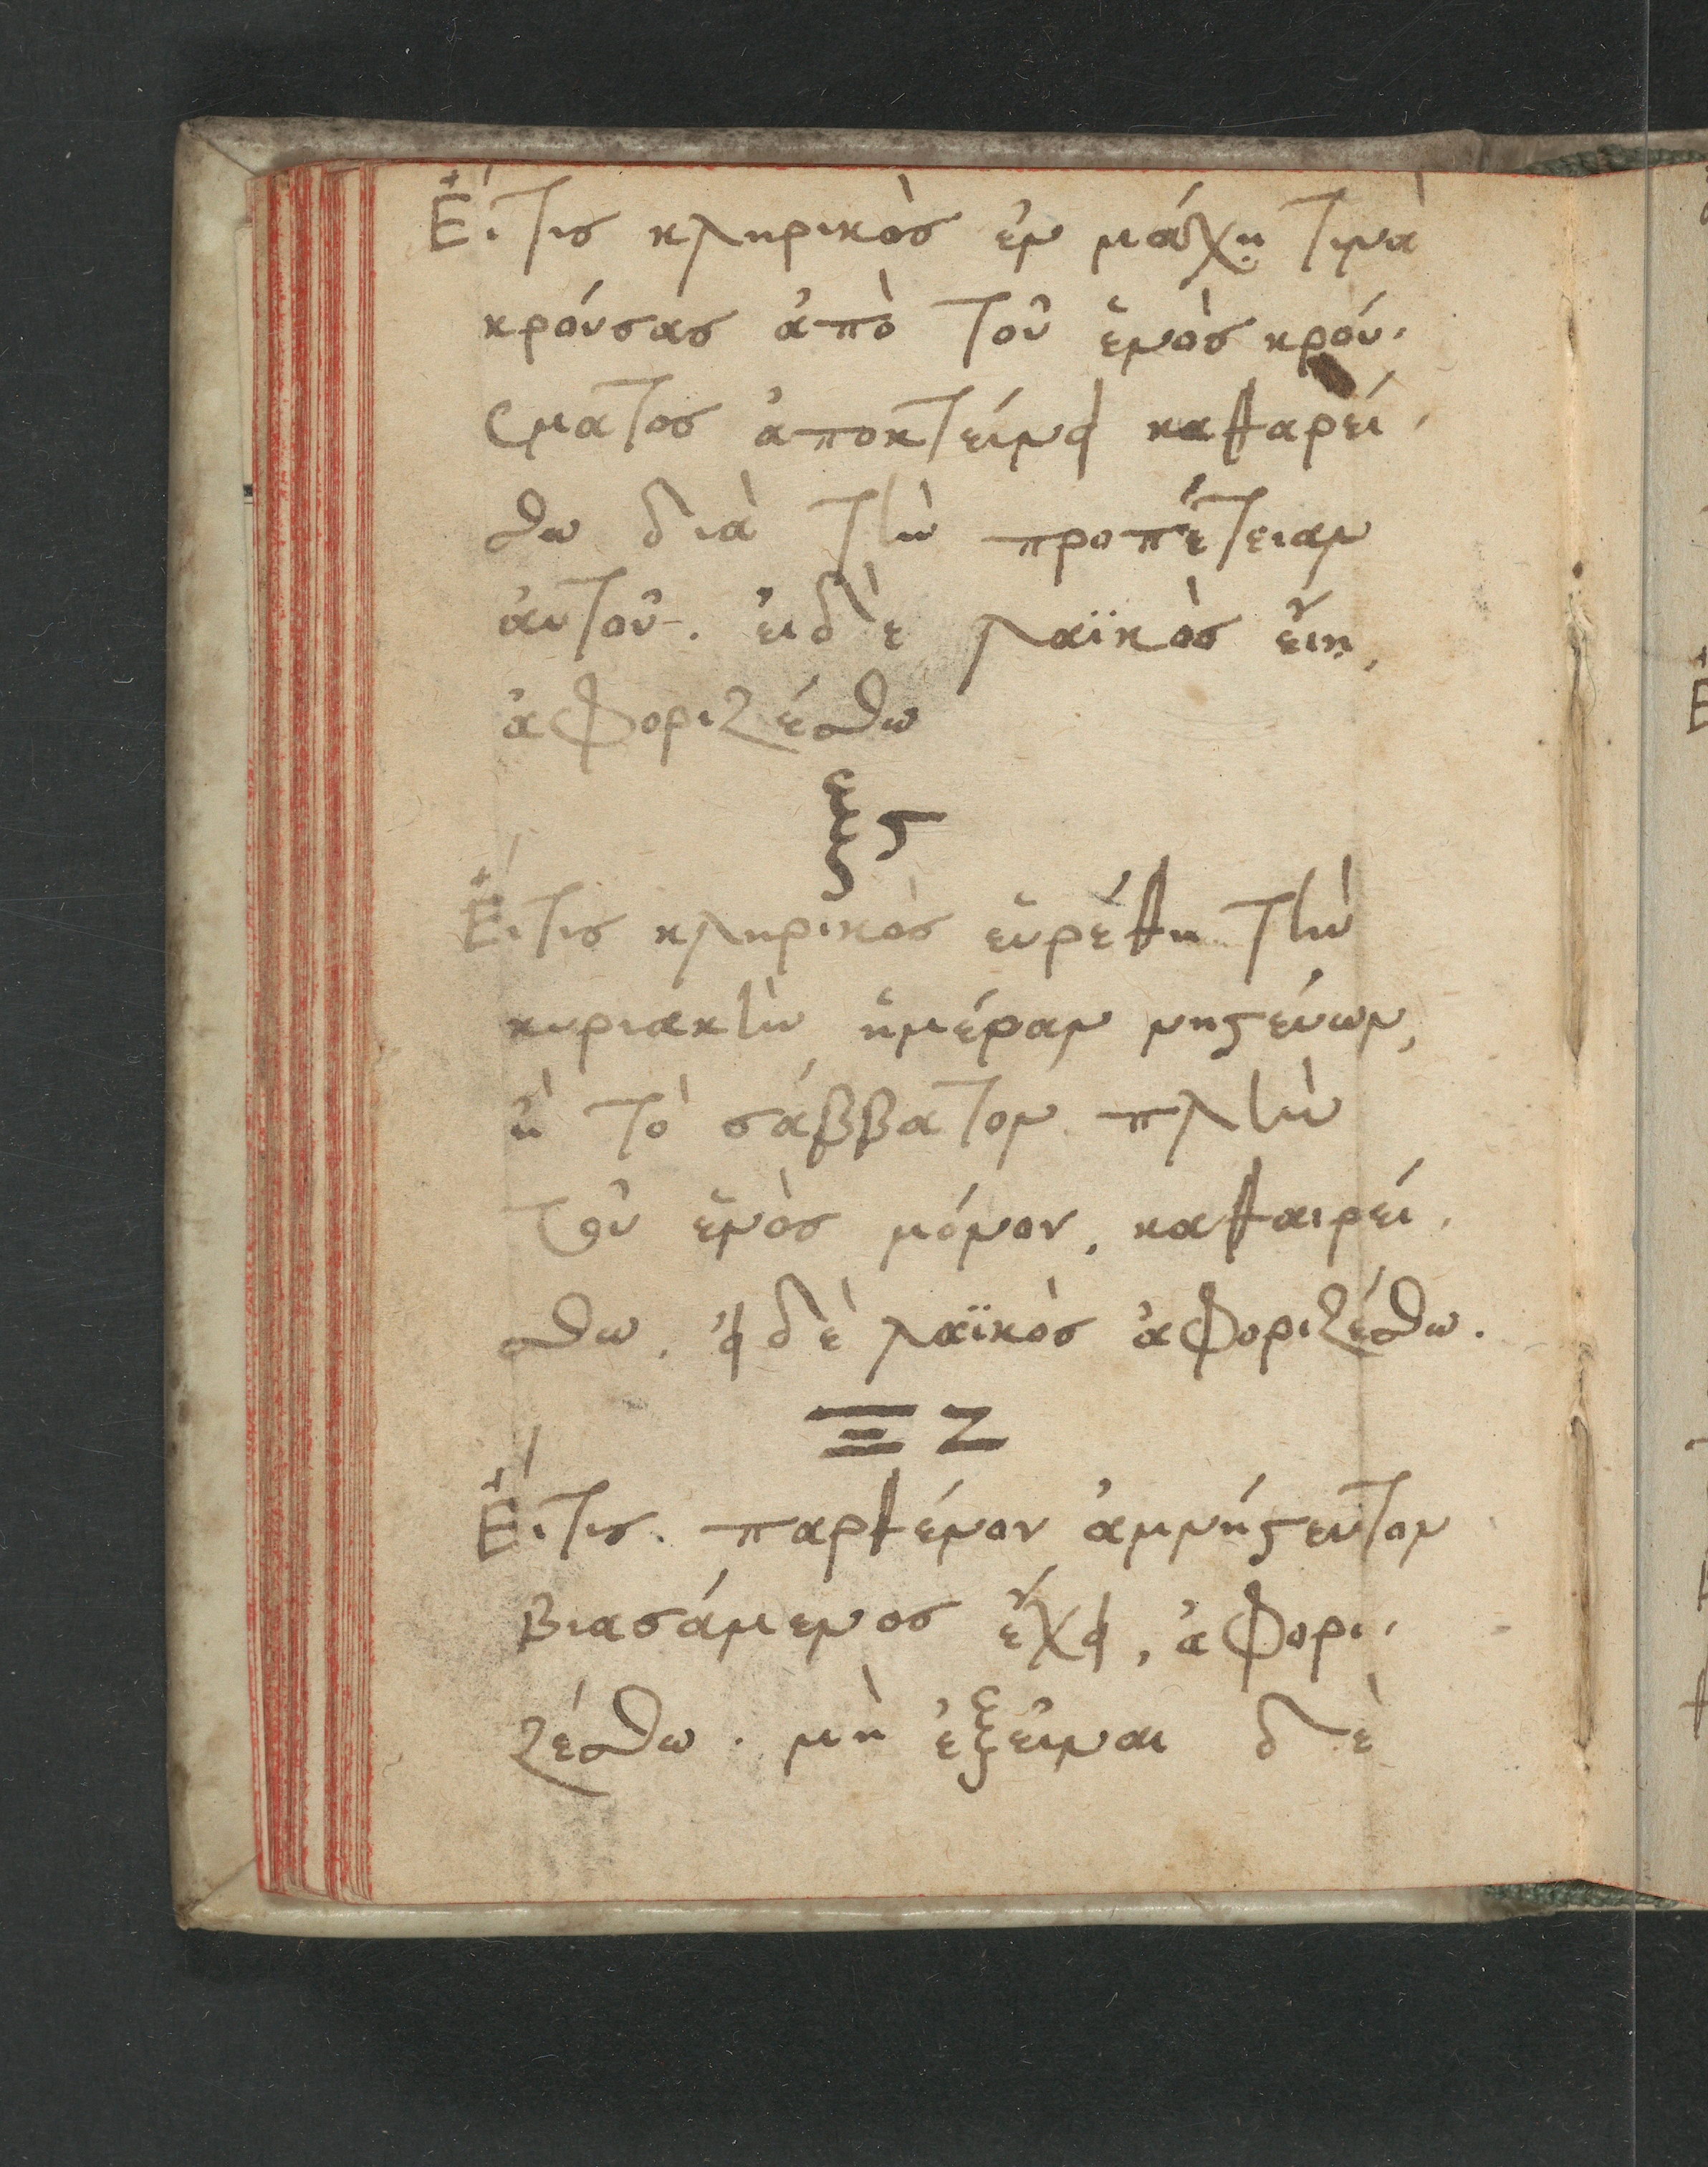 Εἴ τις κληρικὸς ἐν μάχῃ τινὰ
κρούσας ἀπὸ τοῦ ἑνὸς κρού-
σματος ἀποκτείνει καθαρεί-
σθω διὰ τὴν προπέτειαν
ἀυτοῦ. ἐιδὲ λαϊκὸς εἴη,
ἀφοριζέσθω
ξϛ
Εἴ τις κληρικὸς εὑρέθη τὴν
κυριακὴν ἡμέραν νηστεύων,
ἢ τὸ σάββατον πλὴν
τοῦ ἑνὸς μόνου, καθαιρεί-
σθω, εἰ δὲ λαϊκὸς ἀφοριζέσθω.
ΞΖ
Εἴ τις. παρθένον ἀμνήστευτον
βιασάμενος ἔχει, ἀφορι-
ζέσθω. μὴ ἐξεῖναι δὲ